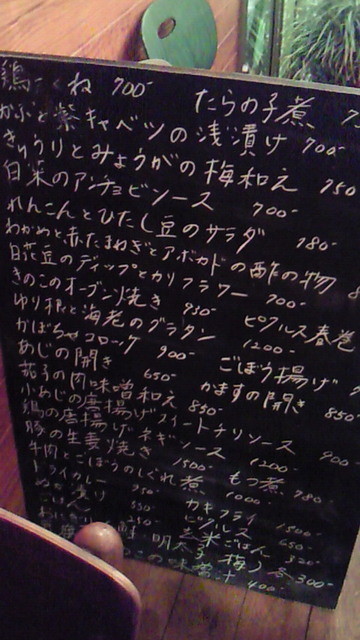 ね 700- たらの子煮
かぶと紫キャベツの浅漬け 700-
きゅうりとみょうがの梅和え 750
白菜のアンチョビソース 700-
れんこんとひたし豆のサラダ 780-
わかめと赤たまねぎとアボカドの酢の物
白花豆のディップとカリフラワー 700-
きのこのオーブン焼き 950- ピクルス春巻
ゆり根と海老のグラタン 1200-
かぼちゃコロッケ 900- ごぼう揚げ
あじの開き 650- かますの開き 850
茄子の肉味噌和え 850-
小あじの唐揚げスイートチリソース 900-
鶏の唐揚げネギソース 1200-
豚の生姜焼き 1500- もつ煮 780-
牛肉とごぼうのしぐれ煮 1000-
ドライカレー 950- カキフライ 1500-
ピクルス 650-
ごはん 250- 玄米ごはん 320-
鮭 明太子 梅 各300-
の味噌汁 400-